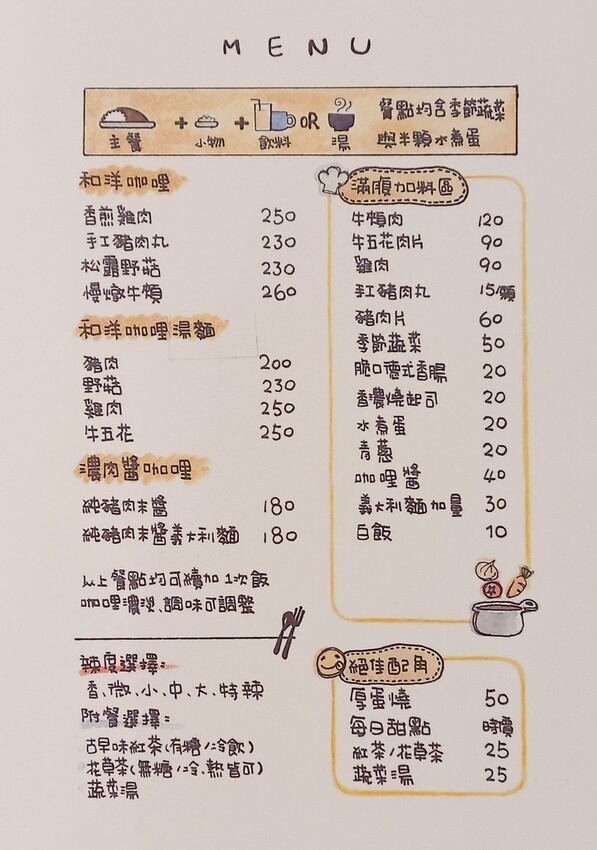 MENU
主餐 + 小物 + 飲料 OR 湯
餐點均含季節蔬菜
與半顆水煮蛋
和洋咖哩
香煎雞肉 250
手工豬肉丸 230
松露野菇 230
慢燉牛頰 260
和洋咖哩湯麵
豬肉 200
野菇 230
雞肉 250
牛五花 250
濃肉醬咖哩
純豬肉末醬 180
純豬肉末醬義大利麵 180
以上餐點均可續加1次飯
咖哩濃淡、調味可調整
辣度選擇:
香、微、小、中、大、特辣
附餐選擇:
古早味紅茶(有糖/冷飲)
花草茶(無糖/冷、熱皆可)
蔬菜湯
滿腹加料區
牛頰肉 120
牛五花肉片 90
雞肉 90
手工豬肉丸 15/顆
豬肉片 60
季節蔬菜 50
脆口德式香腸 20
香濃燒起司 20
水煮蛋 20
青蔥 20
咖哩醬 40
義大利麵加量 30
白飯 10
絕佳配角
厚蛋燒 50
每日甜點 時價
紅茶/花草茶 25
蔬菜湯 25